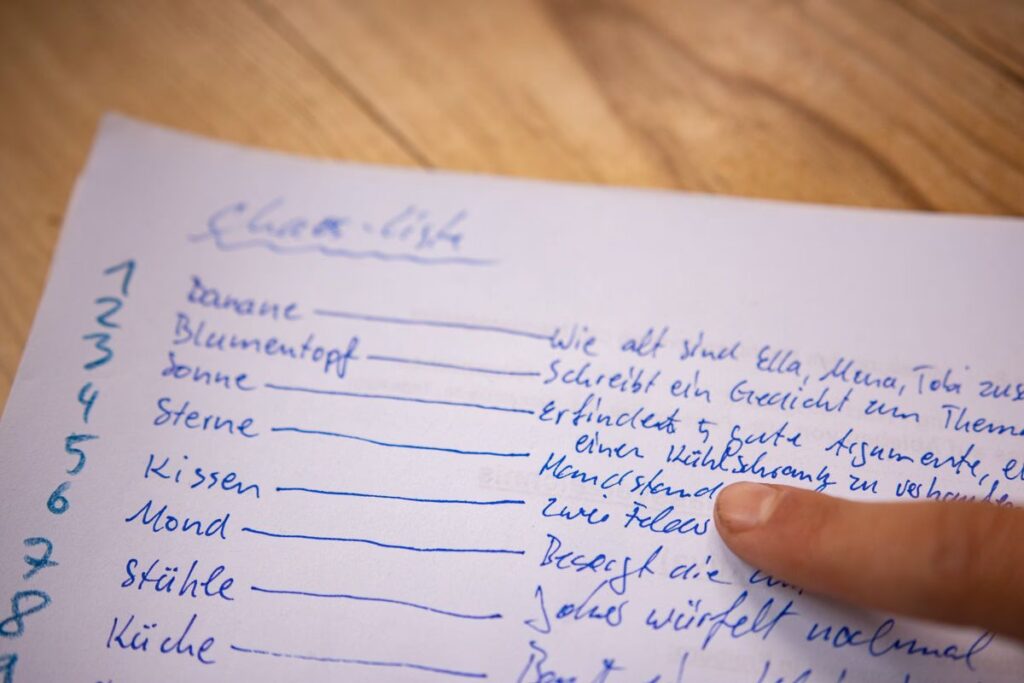 Chaos-liste
1 Banane — Wie alt sind Ella, Mona, Tobi zus
2 Blumentopf — Schreibt ein Gedicht zum Thema
3 Sonne — Erfindet 5 gute Argumente,
einen Kühlschrank zu verkaufen
4 Sterne — Handstand
5 Kissen — zwei Felder
6 Mond — Besorgt die
7 Stühle — Jedes würfelt nochmal
8 Küche — Baut
9